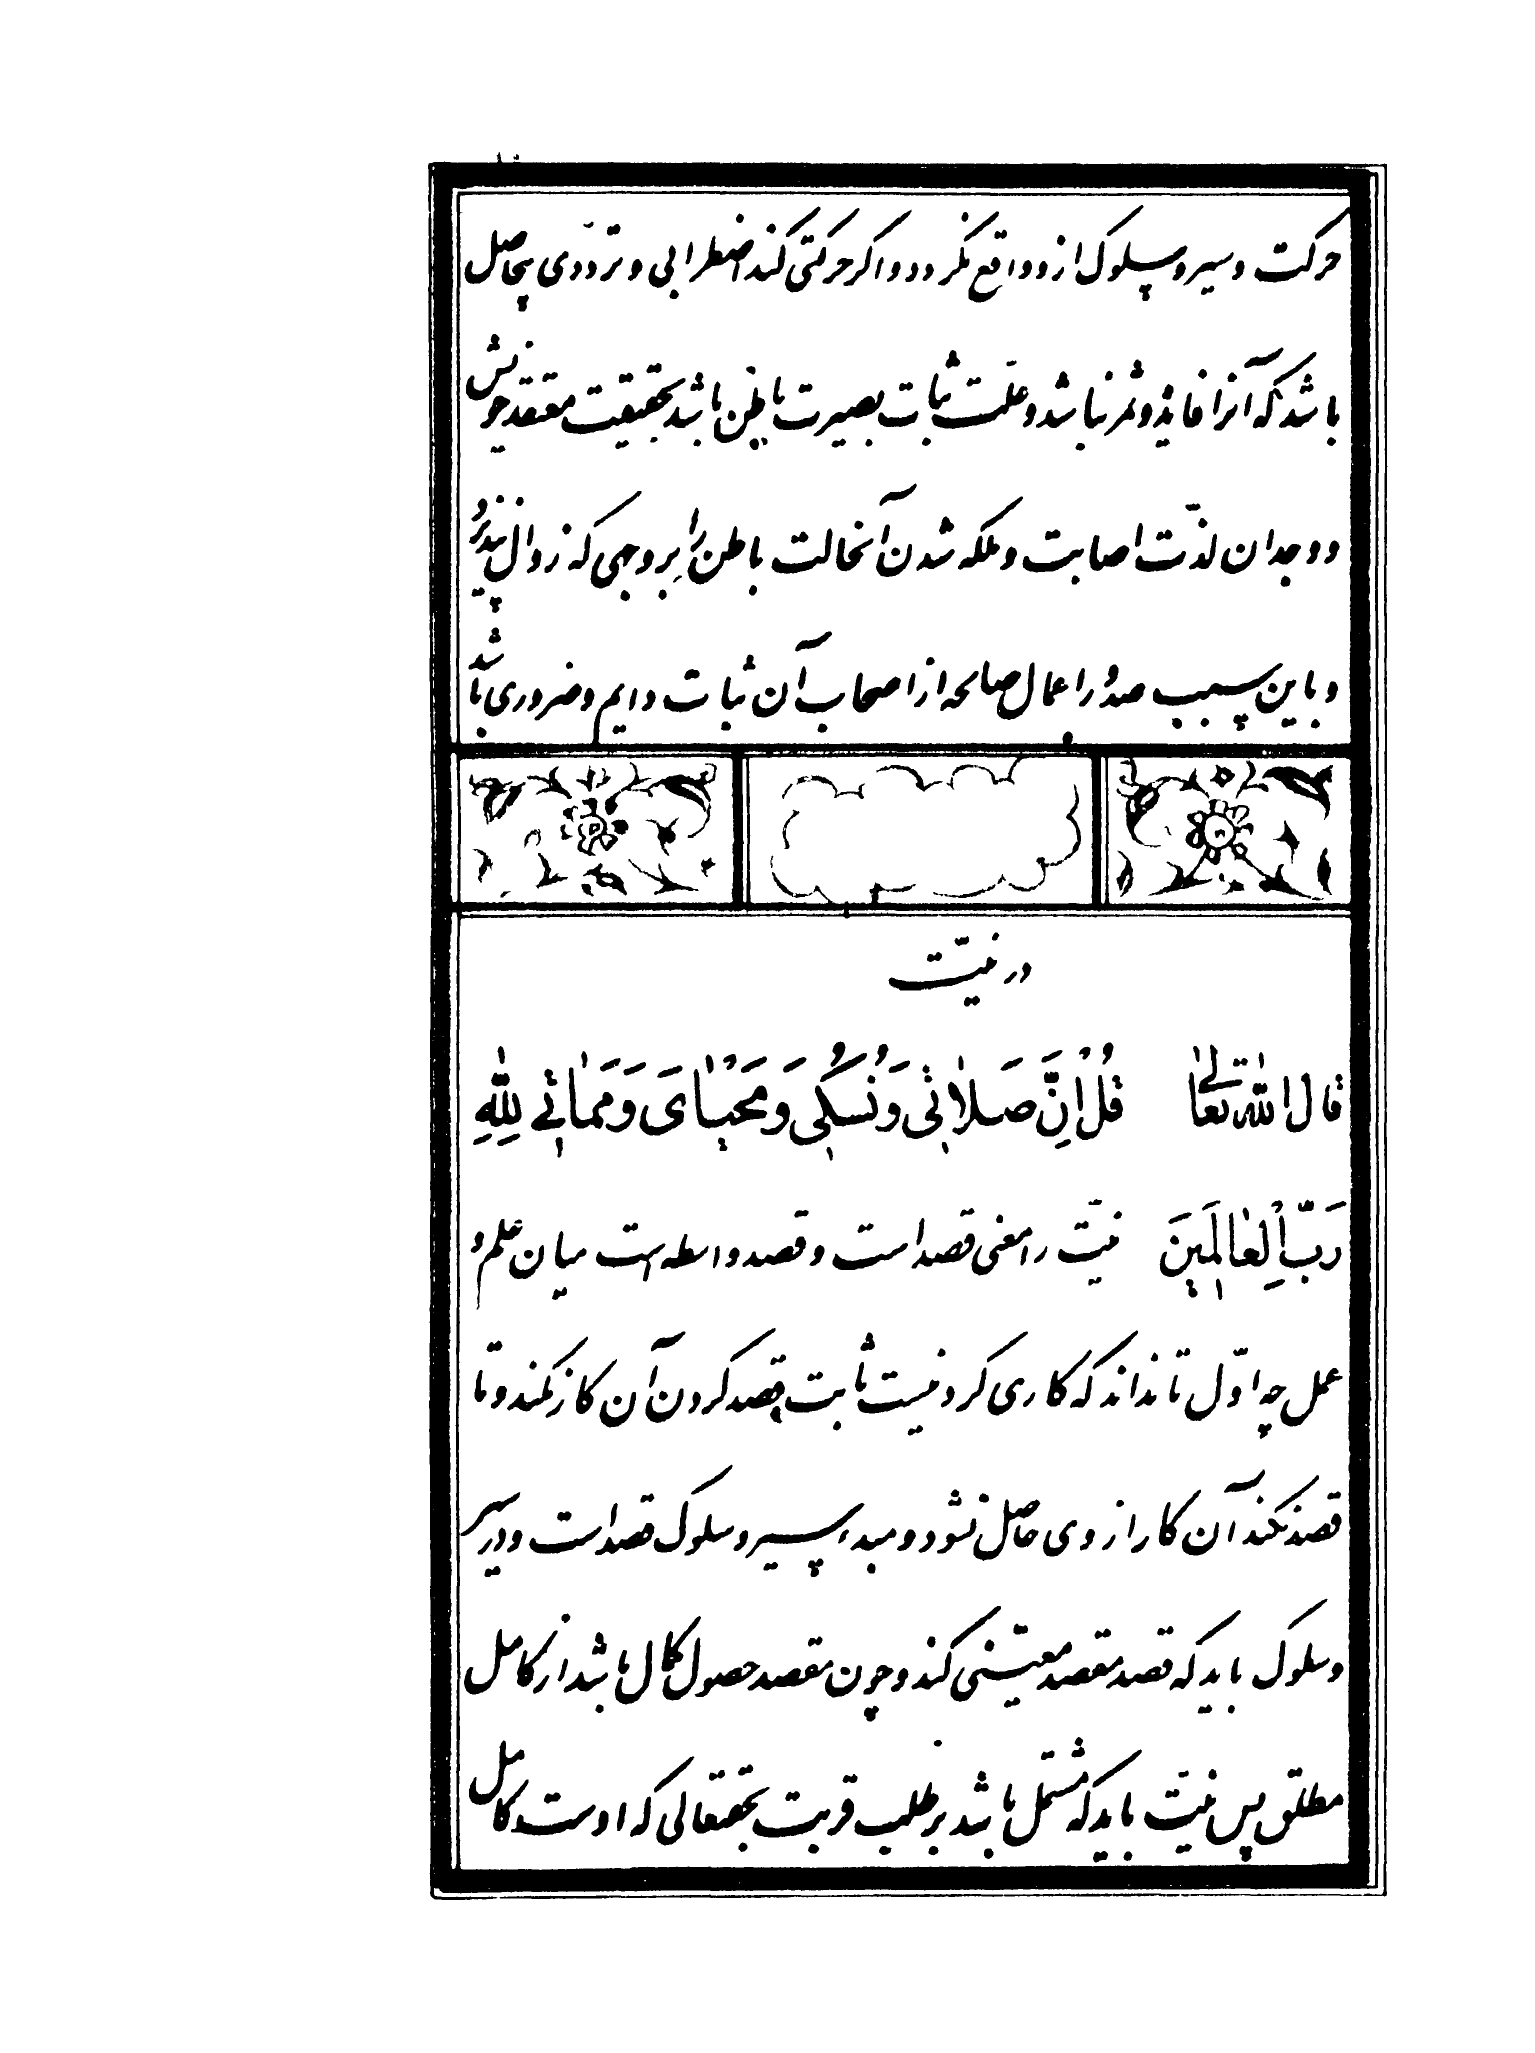 حرکت و سیر و سلوک ازو واقع نگردد و اگر حرکتی کند اضطرابی و تردّدی بیحاصل
باشد که آنرا فایده و ثمر نباشد و علّت ثبات بصیرت باطن باشد بحقیقت معتقد خویش
و وجدان لذّت اصابت و ملکه شدن آنحالت باطن را بر وجهی که زوال نپذیرد
و باین سبب صدور اعمال صالحه از اصحاب آن ثبات دایم و ضروری باشد
در نیّت
قال الله تعالی قُلْ اِنَّ صَلاٰتِی وَنُسُکِی وَمَحْیٰایَ وَمَمٰاتِی لِلّٰهِ
رَبِّ الْعٰالَمِینَ نیّت را معنی قصد است و قصد واسطه است میان علم و
عمل چه اوّل تا نداند که کاری کردنیست ثابت قصد کردن آن کار نکند و تا
قصد نکند آن کار از وی حاصل نشود و مبدء سیر و سلوک قصد است و در سیر
و سلوک باید که قصد مقصد معیّنی کند و چون مقصد حصول کمال باشد از کامل
مطلق پس نیّت باید که مشتمل باشد بر طلب قربت بحقتعالی که اوست کامل